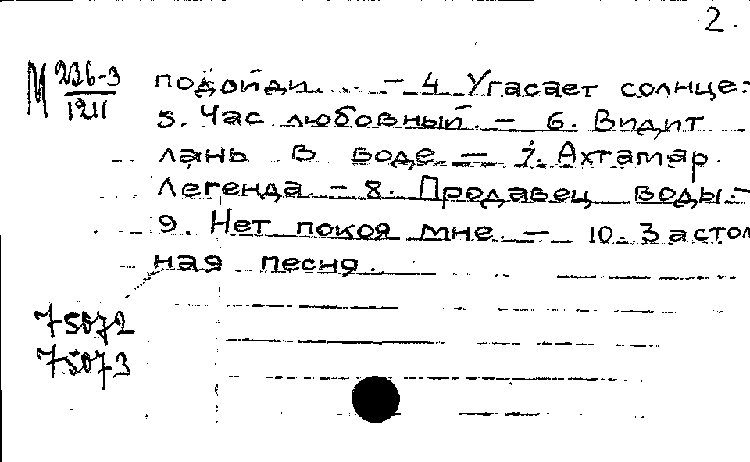 2.
М 236-3
1211
подойди... - 4. Угасает солнце.-
5. Час любовный. - 6. Видит
лань в воде. - 7. Ахтамар.
Легенда. - 8. Продавец воды. -
9. Нет покоя мне. - 10. Застол
ная песня.
75072
75073